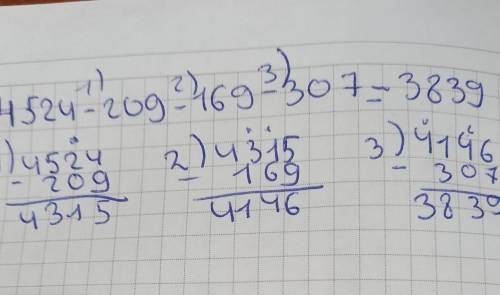 4524 - 209 - 169 - 307 = 3839
1) 2) 3)
1) 4524 2) 4315 3) 4146
- 209 - 169 - 307
4315 4146 3839